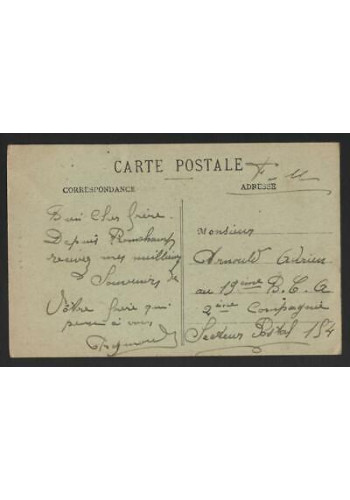 CARTE POSTALE
F. M
CORRESPONDANCE
ADRESSE
Bien Cher frère
Depuis Ronchamp
recevez mes meilleurs
Souvenirs de
Vôtre frère qui
pense à vous
Raymond
Monsieur
Arnould Adrien
au 19ème B.C.A
2ème Compagnie
Secteur Postal 154